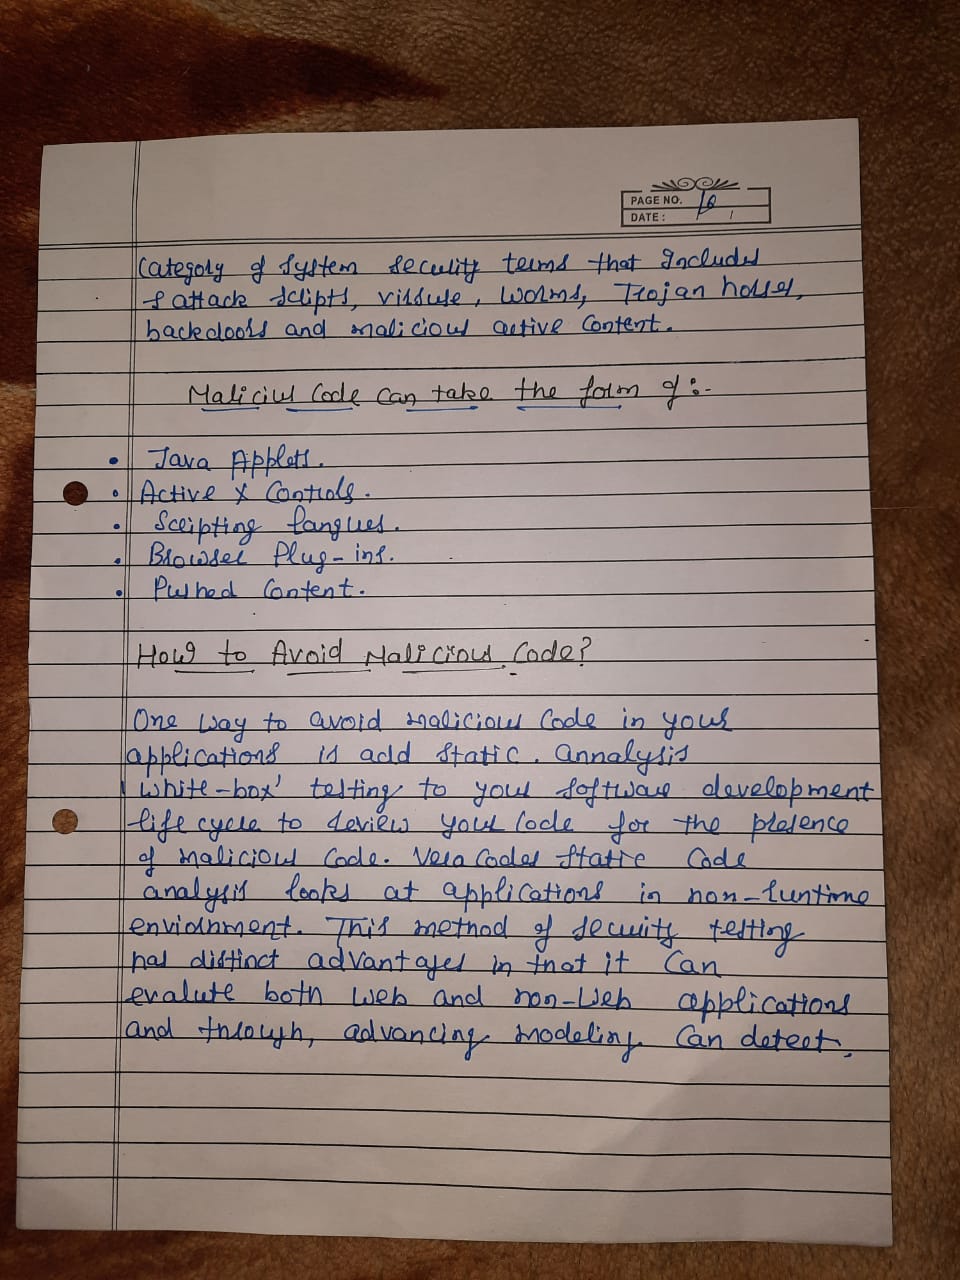 PAGE NO. 10
DATE: / /
Category of System Security terms that Includes
f attack Scripts, virsuse, Worms, Trojan horses,
backdoors and malicious active Content.
Malicius Code Can take the form of :-
• Java Applets.
• Active X Controls.
• Scripting langues.
• Browser Plug-ins.
• Pushed Content.
How to Avoid Malicious Code?
One way to avoid malicious Code in your
applications is add Static. Annalysis
'White-box' testing to your software development
life cycle to review your Code for the presence
of malicious Code. Vera Codes Static Code
analysis looks at applications in non-runtime
enviornment. This method of security testing
has distinct advantages in that it Can
evalute both web and non-web applications
and through, advancing modeling. Can detect,